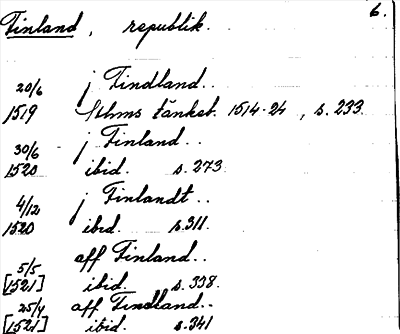 Finland, republik. 6.
20/6 j Findland..
1519 Sthms tänkeb. 1514-24, s. 233
30/6 j Finland..
1520 ibid. s. 273
4/12 j Finlandt..
1520 ibid. s. 311.
5/5 aff Finland..
[1521] ibid. s. 338.
25/4 aff Findland..
[1521] ibid. s. 341